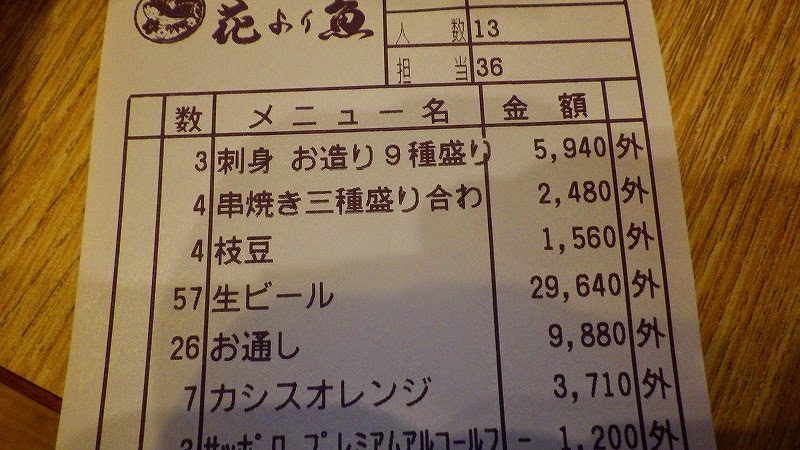 花より魚
人数 13
担当 36
数 メニュー名 金額
3 刺身 お造り9種盛り 5,940 外
4 串焼き三種盛り合わ 2,480 外
4 枝豆 1,560 外
57 生ビール 29,640 外
26 お通し 9,880 外
7 カシスオレンジ 3,710 外
サッポロ プレミアムアルコールフー 1,200 外